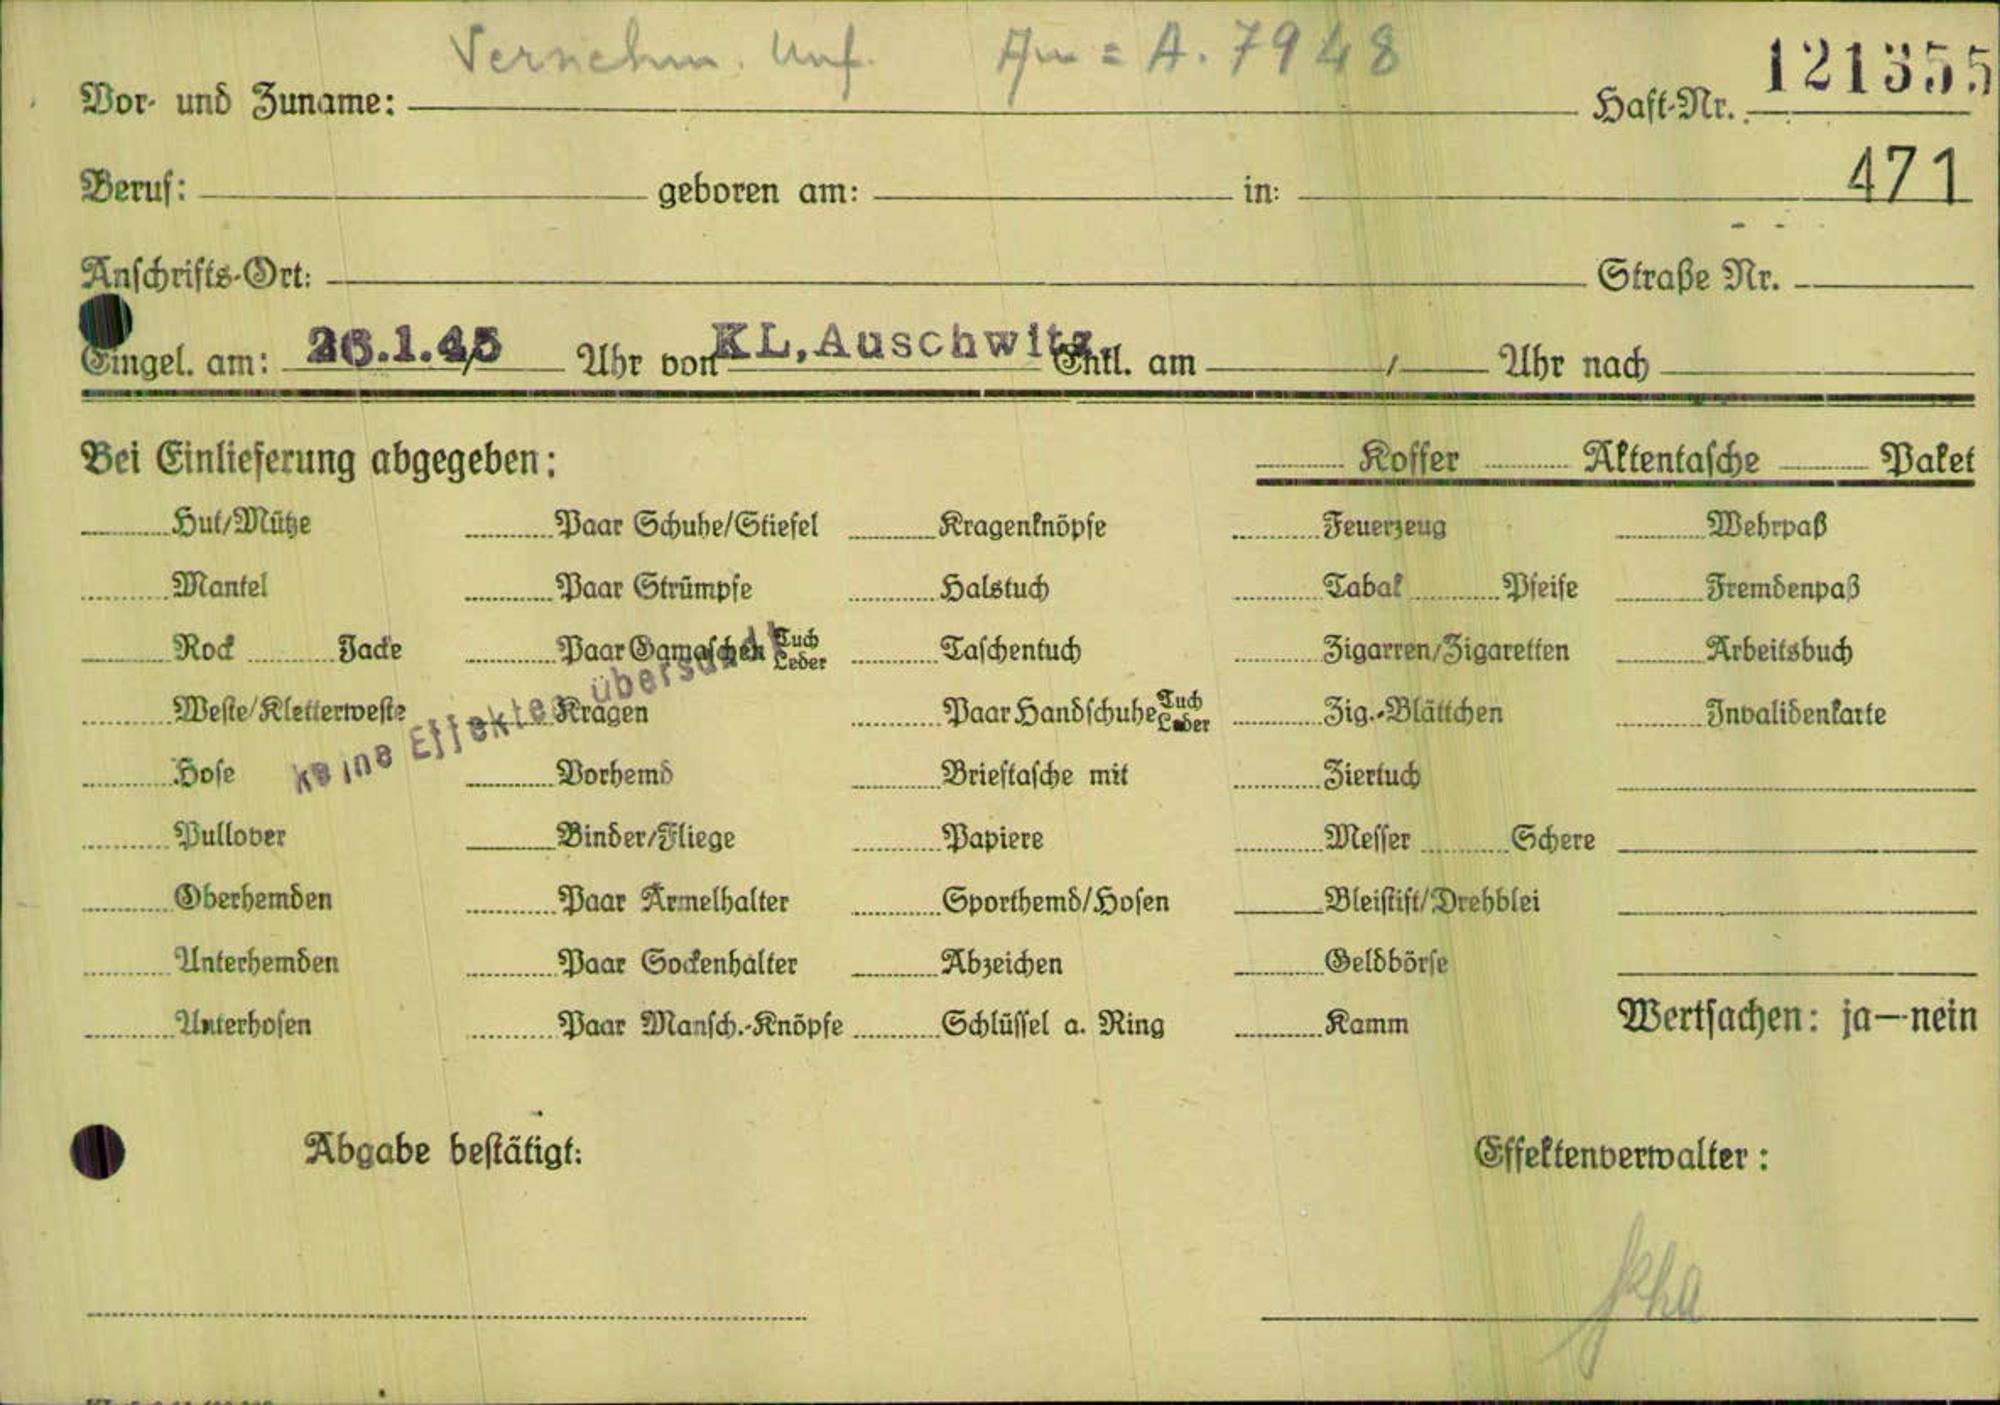 Vernehm. Unf. A. 7948
Vor- und Zuname: Haft-Nr. 121355
Beruf: geboren am: in: 471
Anschrifts-Ort: Straße Nr.
Eingel. am: 26.1.45 Uhr von KL, Auschwitz Entl. am / Uhr nach
Bei Einlieferung abgegeben: Koffer Aktentasche Paket
Hut/Mütze Paar Schuhe/Stiefel Kragenknöpfe Feuerzeug Wehrpaß
Mantel Paar Strümpfe Halstuch Tabak Pfeife Fremdenpaß
Rock Jacke Paar Gamaschen Tuch Leder Taschentuch Zigarren/Zigaretten Arbeitsbuch
Weste/Kletterweste Kragen Paar Handschuhe Tuch Leder Zig.-Blättchen Invalidenkarte
keine Effekten übersandt
Hose Vorhemd Brieftasche mit Ziertuch
Pullover Binder/Fliege Papiere Messer Schere
Oberhemden Paar Ärmelhalter Sporthemd/Hosen Bleistift/Drehblei
Unterhemden Paar Sockenhalter Abzeichen Geldbörse
Unterhosen Paar Mansch.-Knöpfe Schlüssel a. Ring Kamm Wertsachen: ja—nein
Abgabe bestätigt: Effektenverwalter: